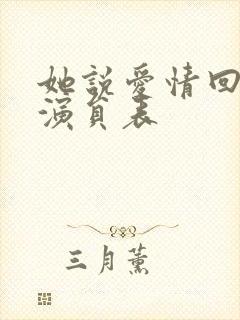 她說愛情回
演員表
三月薰